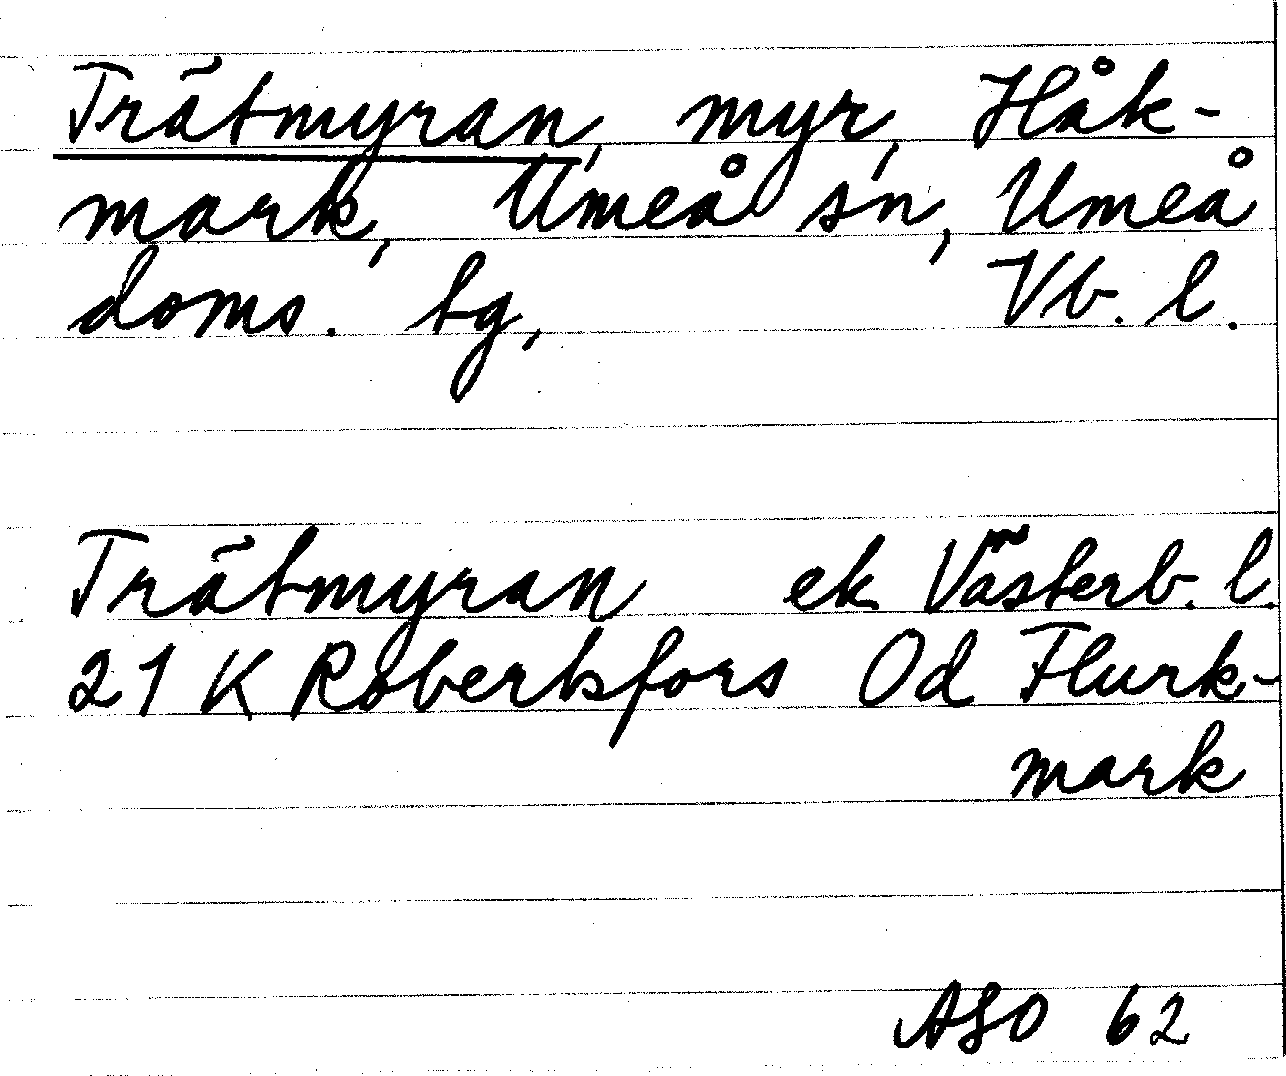 Trätmyran, myr, Håk-
mark, Umeå sn, Umeå
doms. tg, Vb. l.
Trätmyran ek Västerb. l.
21 K Robertsfors Od Flurk-
mark
ASO 62